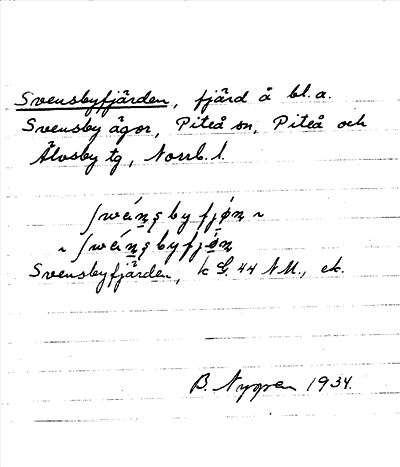 Svensbyfjärden, fjärd å bl.a.
Svensby ägor, Piteå sn, Piteå och
Älvsby tg, Norrb. l.
ʃwéns̥by fjǿn ~
~ ʃwéns̥byfjǿn
Svensbyfjärden, k G. 44 NU., ek.
B. Nygren 1934.